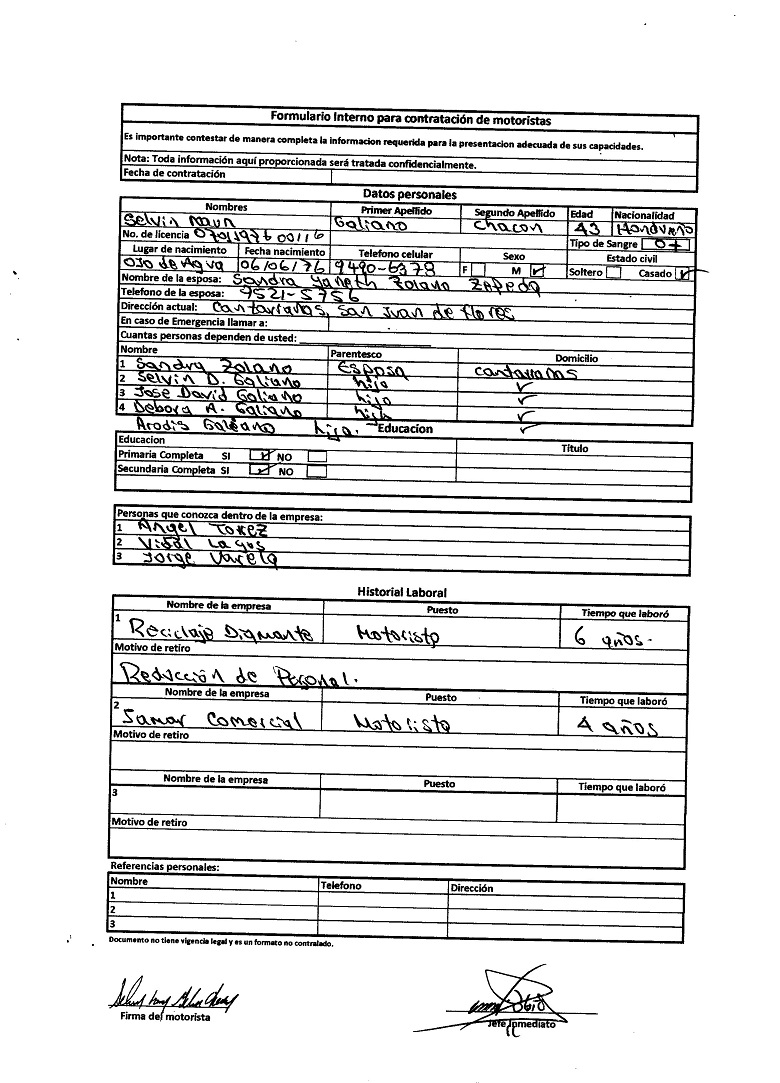 Formulario Interno para contratación de motoristas
Es importante contestar de manera completa la informacion requerida para la presentacion adecuada de sus capacidades.
Nota: Toda información aquí proporcionada será tratada confidencialmente.
Fecha de contratación
Datos personales
Nombres Primer Apellido Segundo Apellido Edad Nacionalidad
Selvin Galiano Chacon 43
No. de licencia 0701197600116 Tipo de Sangre O+
Lugar de nacimiento Fecha nacimiento Telefono celular Sexo Estado civil
Ojo de Agua 06/06/76 9490-6378 F M Soltero Casado
Nombre de la esposa: Sandra Yaneth Zolano Zepeda
Telefono de la esposa: 9521-5756
Dirección actual: Cantarranas, San Juan de flores
En caso de Emergencia llamar a:
Cuantas personas dependen de usted:
Nombre Parentesco Domicilio
1 Sandra Zolano Esposa cantarranas
2 Selvin D. Galiano hijo
3 Jose David Galiano hijo
4 Debora A. Galiano hija
Arodis Galeano hija. Educacion
Educacion Título
Primaria Completa SI NO
Secundaria Completa SI NO
Personas que conozca dentro de la empresa:
1 Angel Torez
2 Vidal Lagos
3 Jorge Varela
Historial Laboral
Nombre de la empresa Puesto Tiempo que laboró
1 Reciclaje Diamante Motoristo 6 años.
Motivo de retiro
Reducción de Personal.
Nombre de la empresa Puesto Tiempo que laboró
2 Samar Comercial Motoristo 4 años
Motivo de retiro
Nombre de la empresa Puesto Tiempo que laboró
3
Motivo de retiro
Referencias personales:
Nombre Telefono Dirección
1
2
3
Documento no tiene vigencia legal y es un formato no contralado.
Firma del motorista
Jefe Inmediato